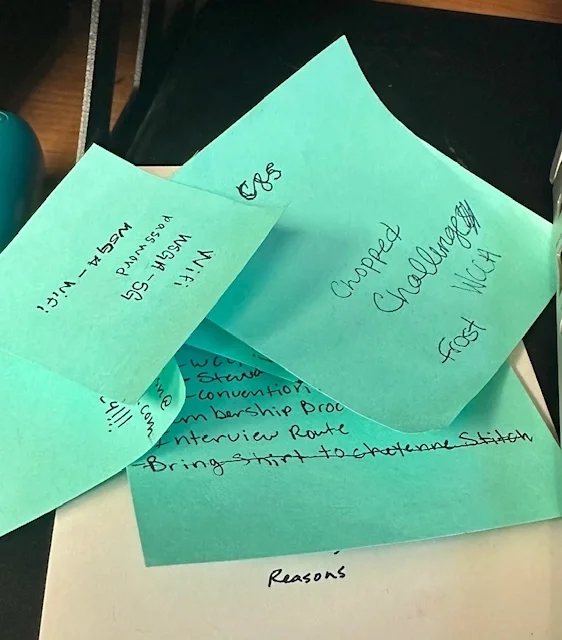 WiFi
WSGA-5G
password
WSGA-WiFi
Chopped
Challenge
Frost WCCH
- Stewa
- convention
mbership Broc
Interview Route
- Bring Shirt to Cheyenne Stitch
Reasons